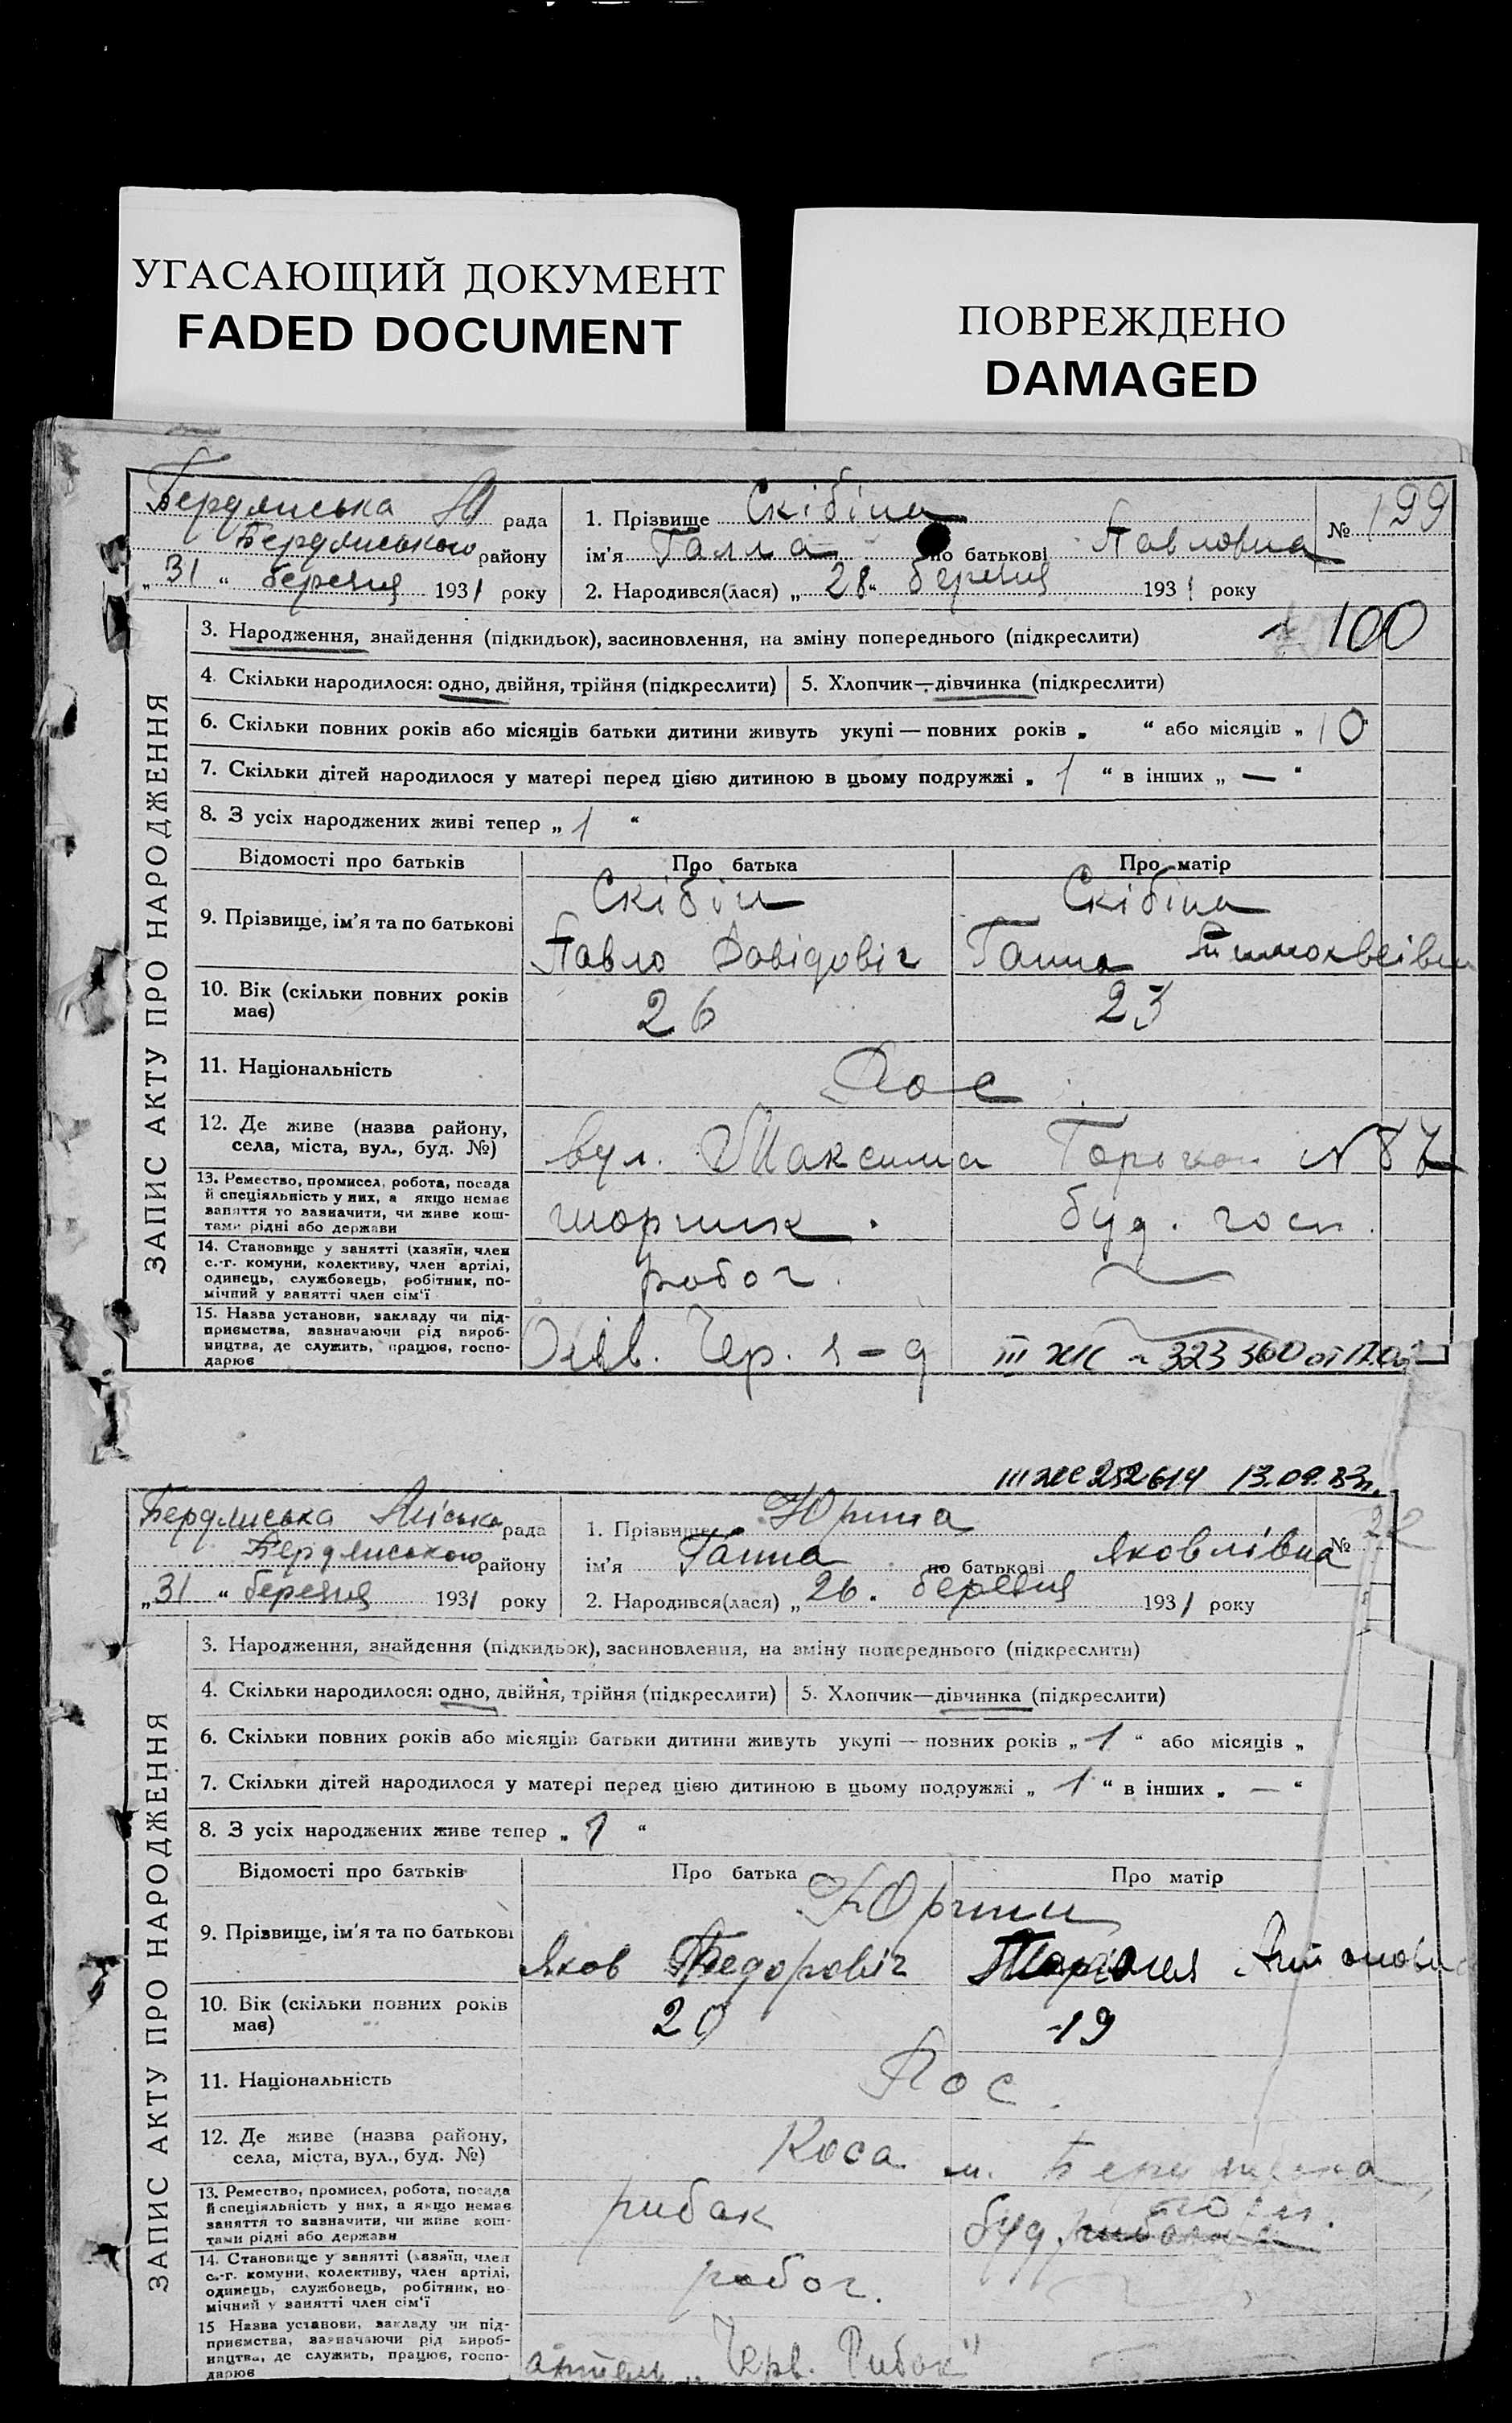 УГАСАЮЩИЙ ДОКУМЕНТ
FADED DOCUMENT
ПОВРЕЖДЕНО
DAMAGED
Бердянська М рада
Бердянського району
„31“ березня 1931 року
1. Прізвище Скібіна
ім’я Галла по батькові Павловна
№ 199
2. Народився(лася) „28“ березня 1931 року
ЗАПИС АКТУ ПРО НАРОДЖЕННЯ
3. Народження, знайдення (підкидьок), засиновлення, на зміну попереднього (підкреслити)
100
4. Скільки народилося: одно, двійня, трійня (підкреслити) 5. Хлопчик—дівчинка (підкреслити)
6. Скільки повних років або місяців батьки дитини живуть укупі — повних років „ “ або місяців „ 10
7. Скільки дітей народилося у матері перед цією дитиною в цьому подружжі „ 1 “ в інших „ — “
8. З усіх народжених живі тепер „ 1 “
Відомості про батьків Про батька Про матір
9. Прізвище, ім’я та по батькові
Скібін Скібіна
Павло Давідовіч Ганна
10. Вік (скільки повних років має)
26 23
11. Національність
Рос
12. Де живе (назва району, села, міста, вул., буд. №)
вул. Максима Горького № 87
13. Ремество, промисел, робота, посада й спеціяльність у них, а якщо немає заняття то зазначити, чи живе коштами рідні або держави
шорник. буд. госп.
14. Становище у занятті (хазяїн, член с.-г. комуни, колективу, член артілі, одинець, службовець, робітник, помічний у занятті член сім’ї
робоч.
15. Назва установи, закладу чи підприємства, зазначаючи рід виробництва, де служить, працює, господарює
Чер. 1-д
III ЖС 323360 от
III ЖС 252614 13.09.83г.
Бердянська Міська рада
Бердянського району
„31“ березня 1931 року
1. Прізвище Юрина
ім’я Ганна по батькові Яковлівна
№
2. Народився(лася) „26. березня 1931 року
ЗАПИС АКТУ ПРО НАРОДЖЕННЯ
3. Народження, знайдення (підкидьок), засиновлення, на зміну попереднього (підкреслити)
4. Скільки народилося: одно, двійня, трійня (підкреслити) 5. Хлопчик—дівчинка (підкреслити)
6. Скільки повних років або місяців батьки дитини живуть укупі — повних років „ 1 “ або місяців „
7. Скільки дітей народилося у матері перед цією дитиною в цьому подружжі „ 1 “ в інших „ — “
8. З усіх народжених живе тепер „ 1 “
Відомості про батьків Про батька Про матір
9. Прізвище, ім’я та по батькові
Юрини
Яков Федоровіч
10. Вік (скільки повних років має)
20 19
11. Національність
Рос.
12. Де живе (назва району, села, міста, вул., буд. №)
Коса м. Бердянська
13. Ремество, промисел, робота, посада й спеціяльність у них, а якщо немає заняття то зазначити, чи живе коштами рідні або держави
рибак буд. госп.
14. Становище у занятті (хазяїн, член с.-г. комуни, колективу, член артілі, одинець, службовець, робітник, помічний у занятті член сім’ї
робоч.
15 Назва установи, закладу чи підприємства, зазначаючи рід виробництва, де служить, працює, господарює
артель „Черв. Рибак“